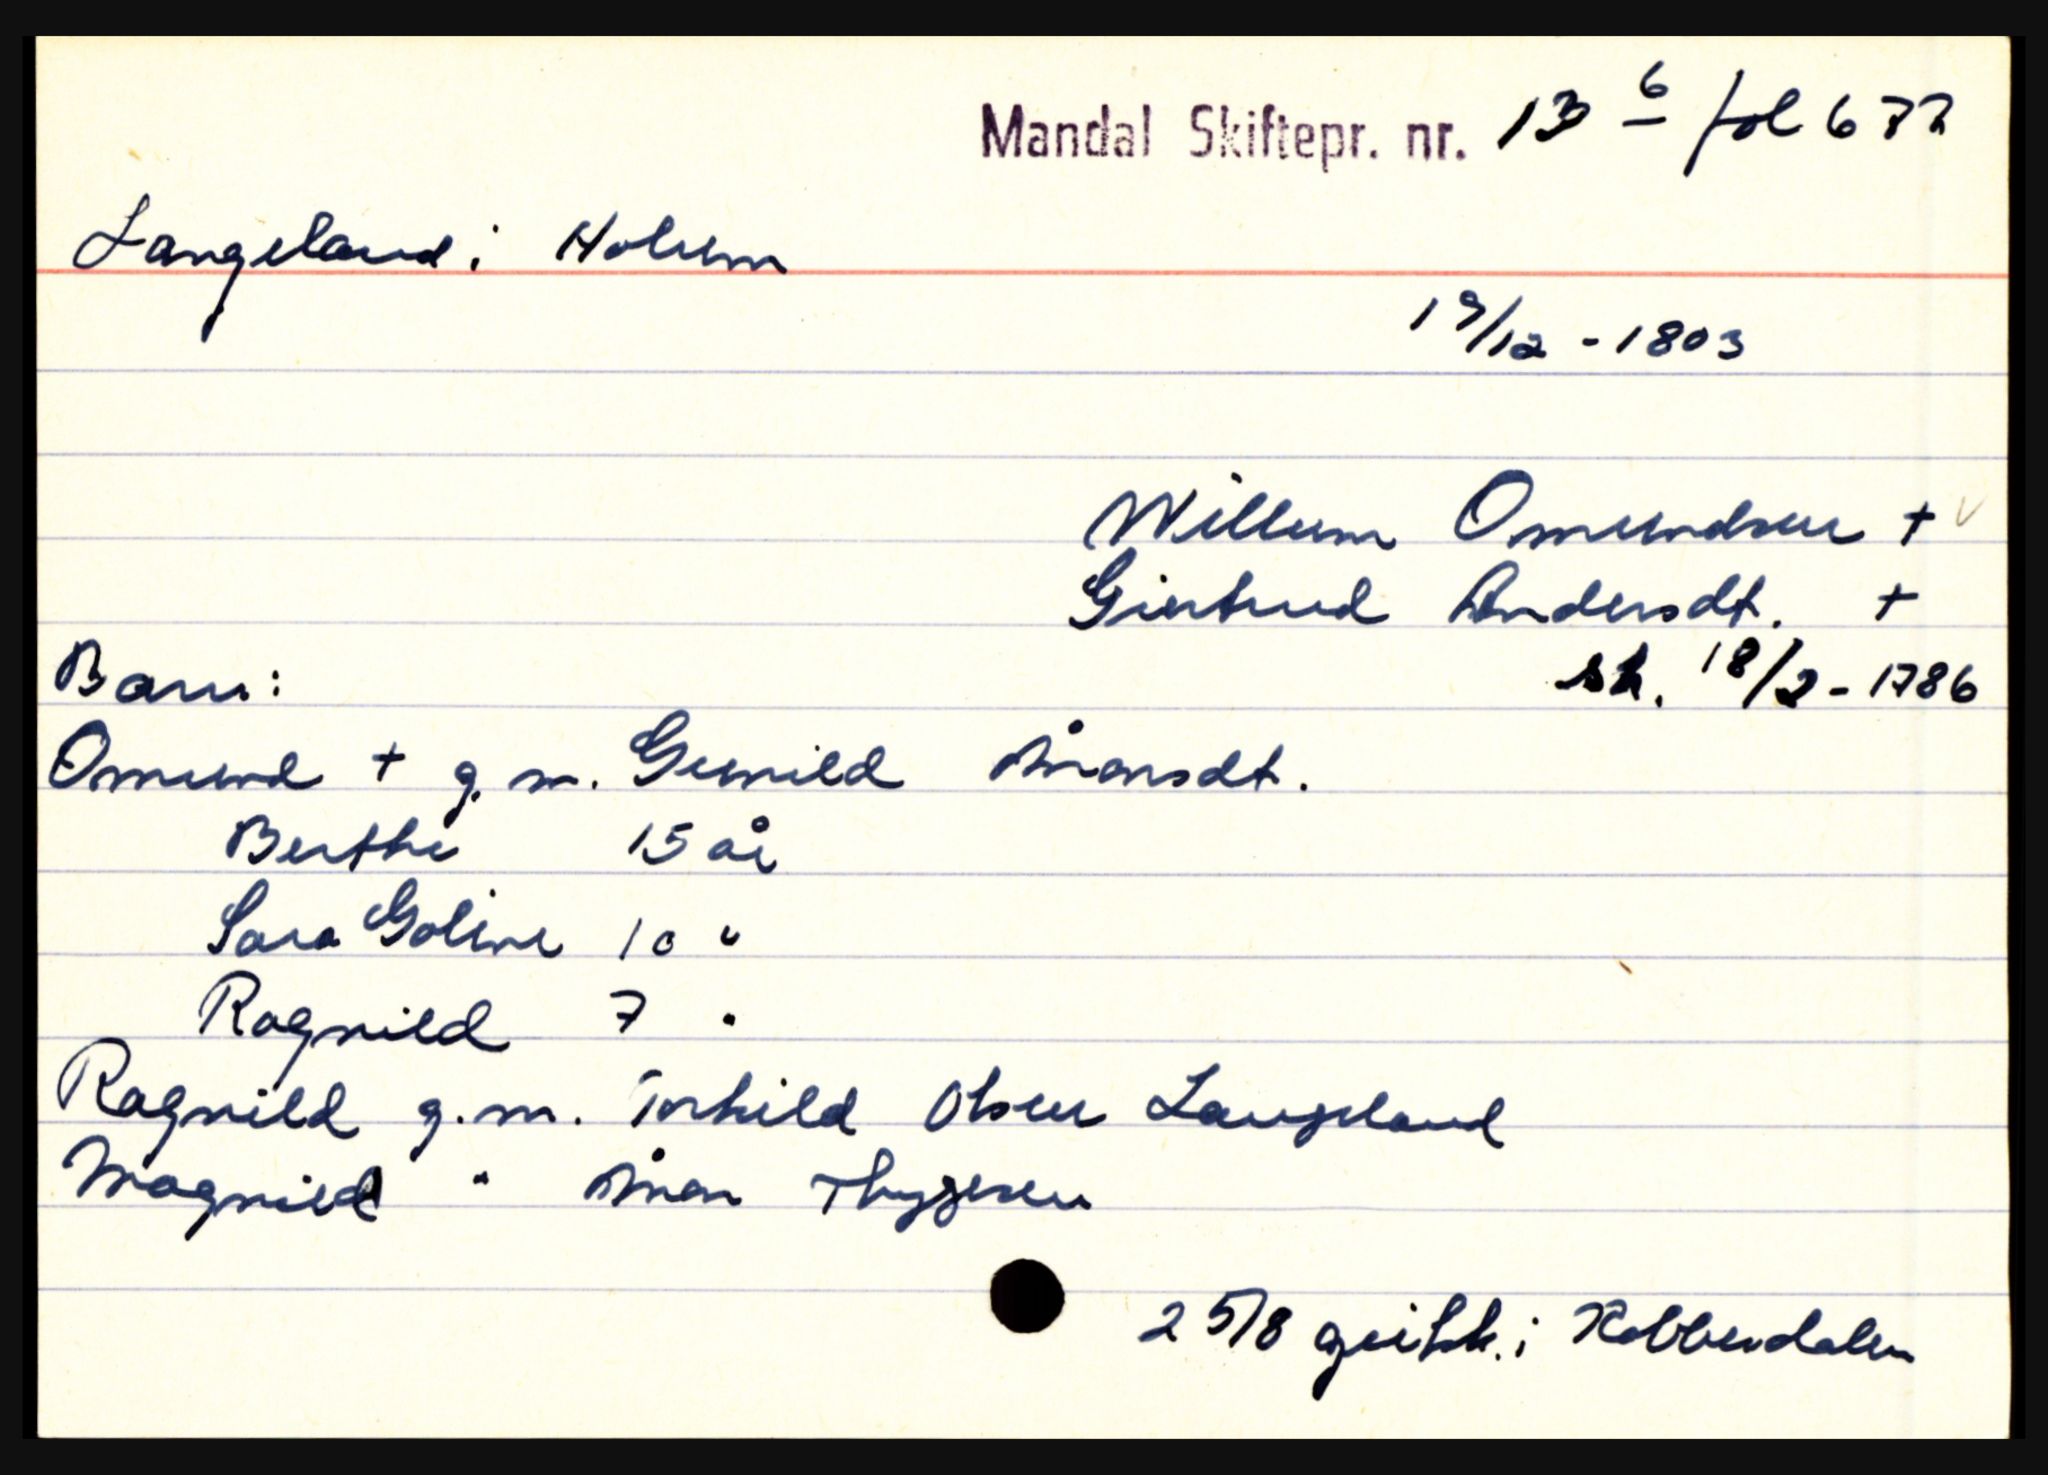 Mandal Skiftepr. nr. 13 6 fol 677
Langeland i Holum
19/12 - 1803
Willum Omundsen +
Giertrud Andersdt. +
sk. 18/2 - 1786
Barn:
Omund + g. m. Gunild Ånonsdt.
Berthe 15 år
Sara Goline 10 "
Ragnild 7 "
Ragnild g. m. Torkild Olsen Langeland
Magnild " Ånon Thygesen
2 5/8 i